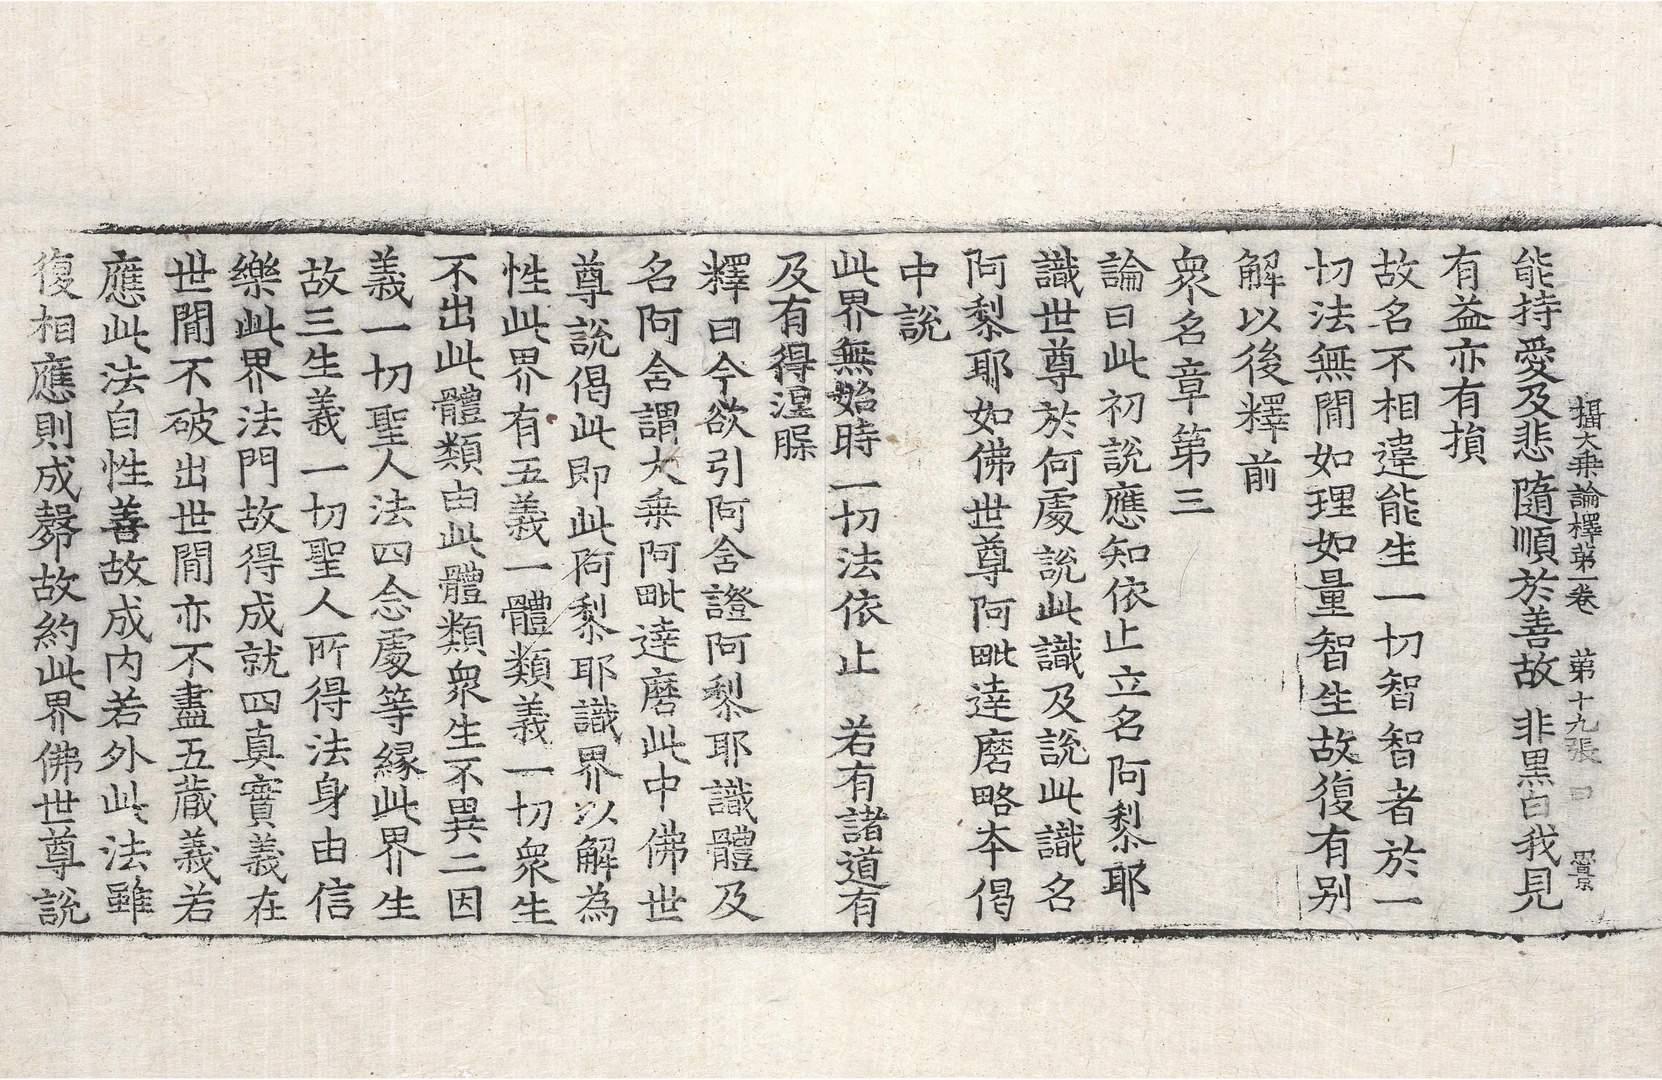 攝大乗論釋第一卷 第十九張 曰 賔
能持愛及悲隨順於善故 非黒白我見
有益亦有損
故名不相違能生一切智智者於一
切法無閒如理如量智生故復有别
解以後釋前
衆名章第三
論曰此初說應知依止立名阿梨耶
識世尊於何處說此識及說此識名
阿梨耶如佛世尊阿毗達磨略本偈
中說
此界無始時一切法依止 若有諸道有
及有得涅槃
釋曰今欲引阿含證阿梨耶識體及
名阿含謂大乗阿毗達磨此中佛世
尊說偈此即此阿梨耶識界以解為
性此界有五義一體類義一切衆生
不出此體類由此體類衆生不異二因
義一切聖人法四念處等縁此界生
故三生義一切聖人所得法身由信
樂此界法門故得成就四真實義在
世閒不破出世閒亦不盡五蔵義若
應此法自性善故成内若外此法雖
復相應則成㲉故約此界佛世尊說